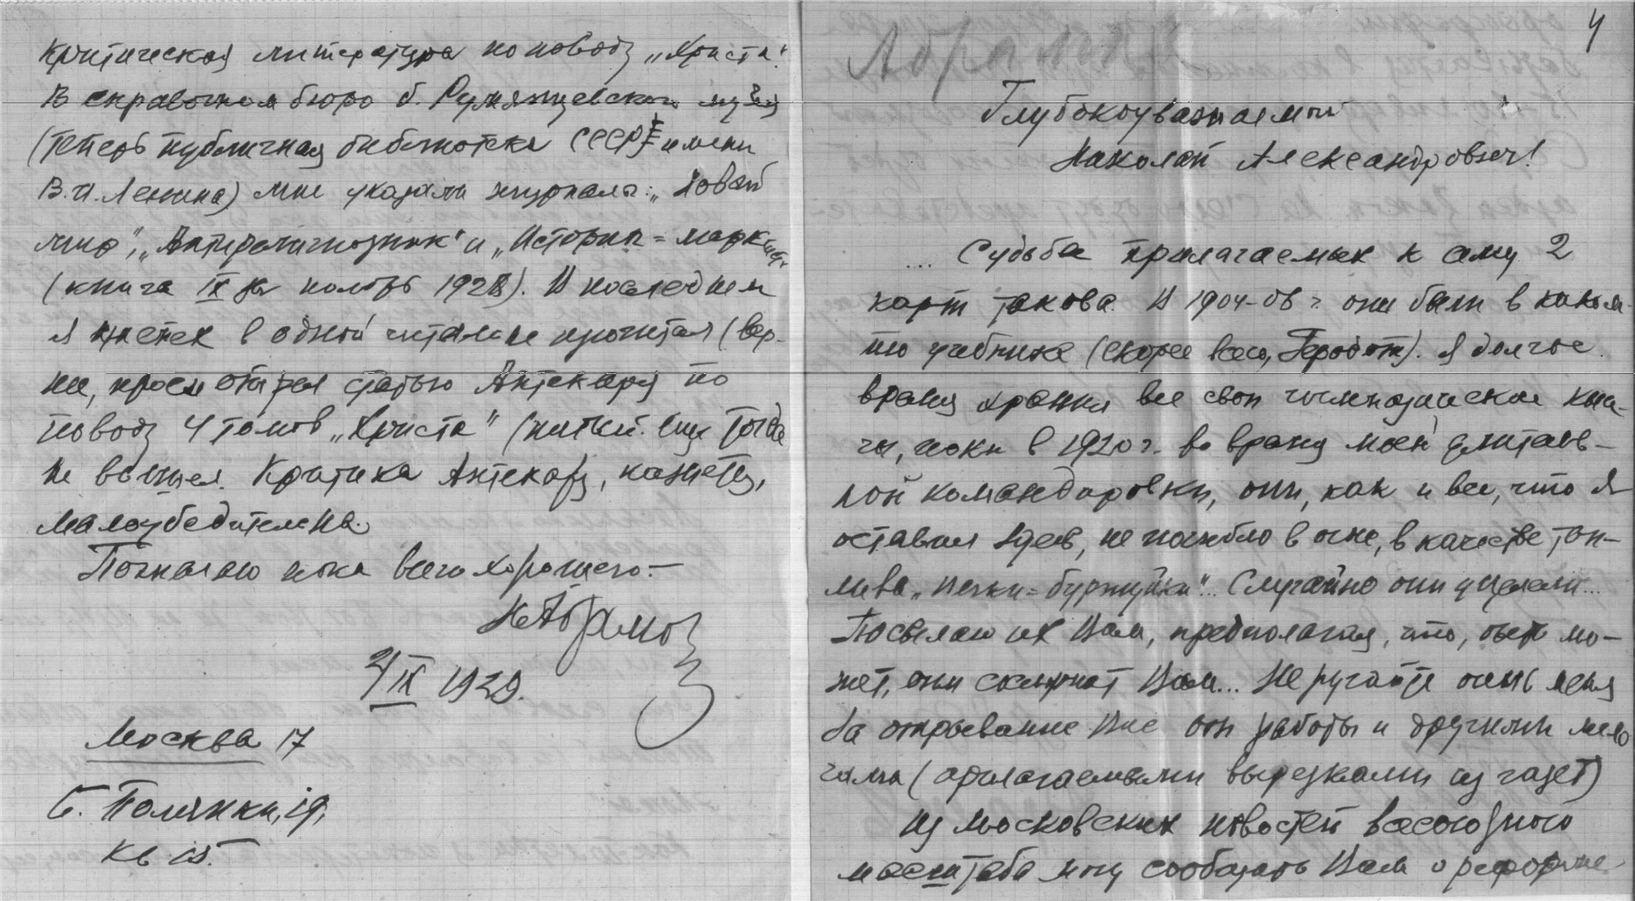 критическая литература по поводу „Христа".
В справочном бюро б. Румянцевского музея
(теперь публичная библиотека СССР имени
В. И. Ленина) мне указали журналы: „Новый
мир", „Антирелигиозник" и „Историк=марксист"
(книга IX за ноябрь 1928). И последнем
я в одной читальне прочитал (вер-
нее, просмотрел статью Аптекаря по
поводу 4 томов „Христа" (пятый еще тогда
не вышел. Критика Аптекаря, кажется,
малоубедительна.
Пожелаю пока всего хорошего.—
НАбрамов
4/IX 1929.
Москва 17
Б. Полянка, 19,
кв 15.
4
Абрамов
Глубокоуважаемый
Николай Александрович!
... Судьба прилагаемых к сему 2
карт такова. В 1904-06 г. они были в каком-
то учебнике (скорее всего, Геродот). Я долгое
время хранил все свои гимназические кни-
ги, пока в 1920 г. во время моей длитель-
ной командировки, они, как и все, что я
оставил здесь, не погибло в огне, в качестве топ-
лива „печки=буржуйки"... Случайно они уцелели...
Посылаю их Вам, предполагая, что, быть мо-
жет, они сслужат Вам... Не ругайте очень меня
за отрывание Вас от работы и другими мело
чами (прилагаемыми вырезками из газет)
Из московских новостей всесоюзного
масштаба могу сообщить Вам о реформе